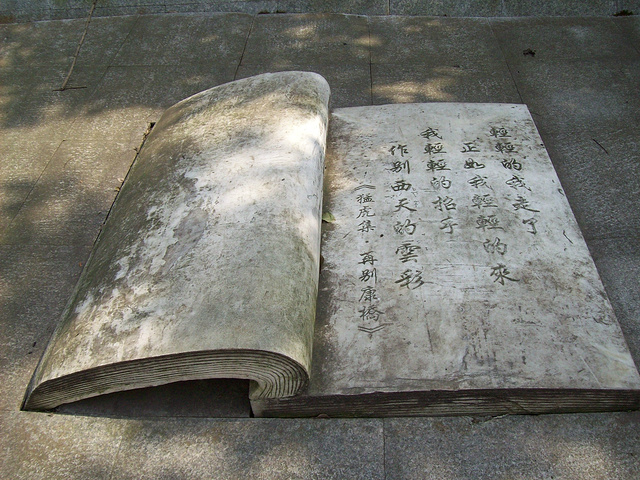 輕輕的我走了
正如我輕輕的來
我輕輕的招手
作别西天的雲彩
《猛虎集·再别康橋》